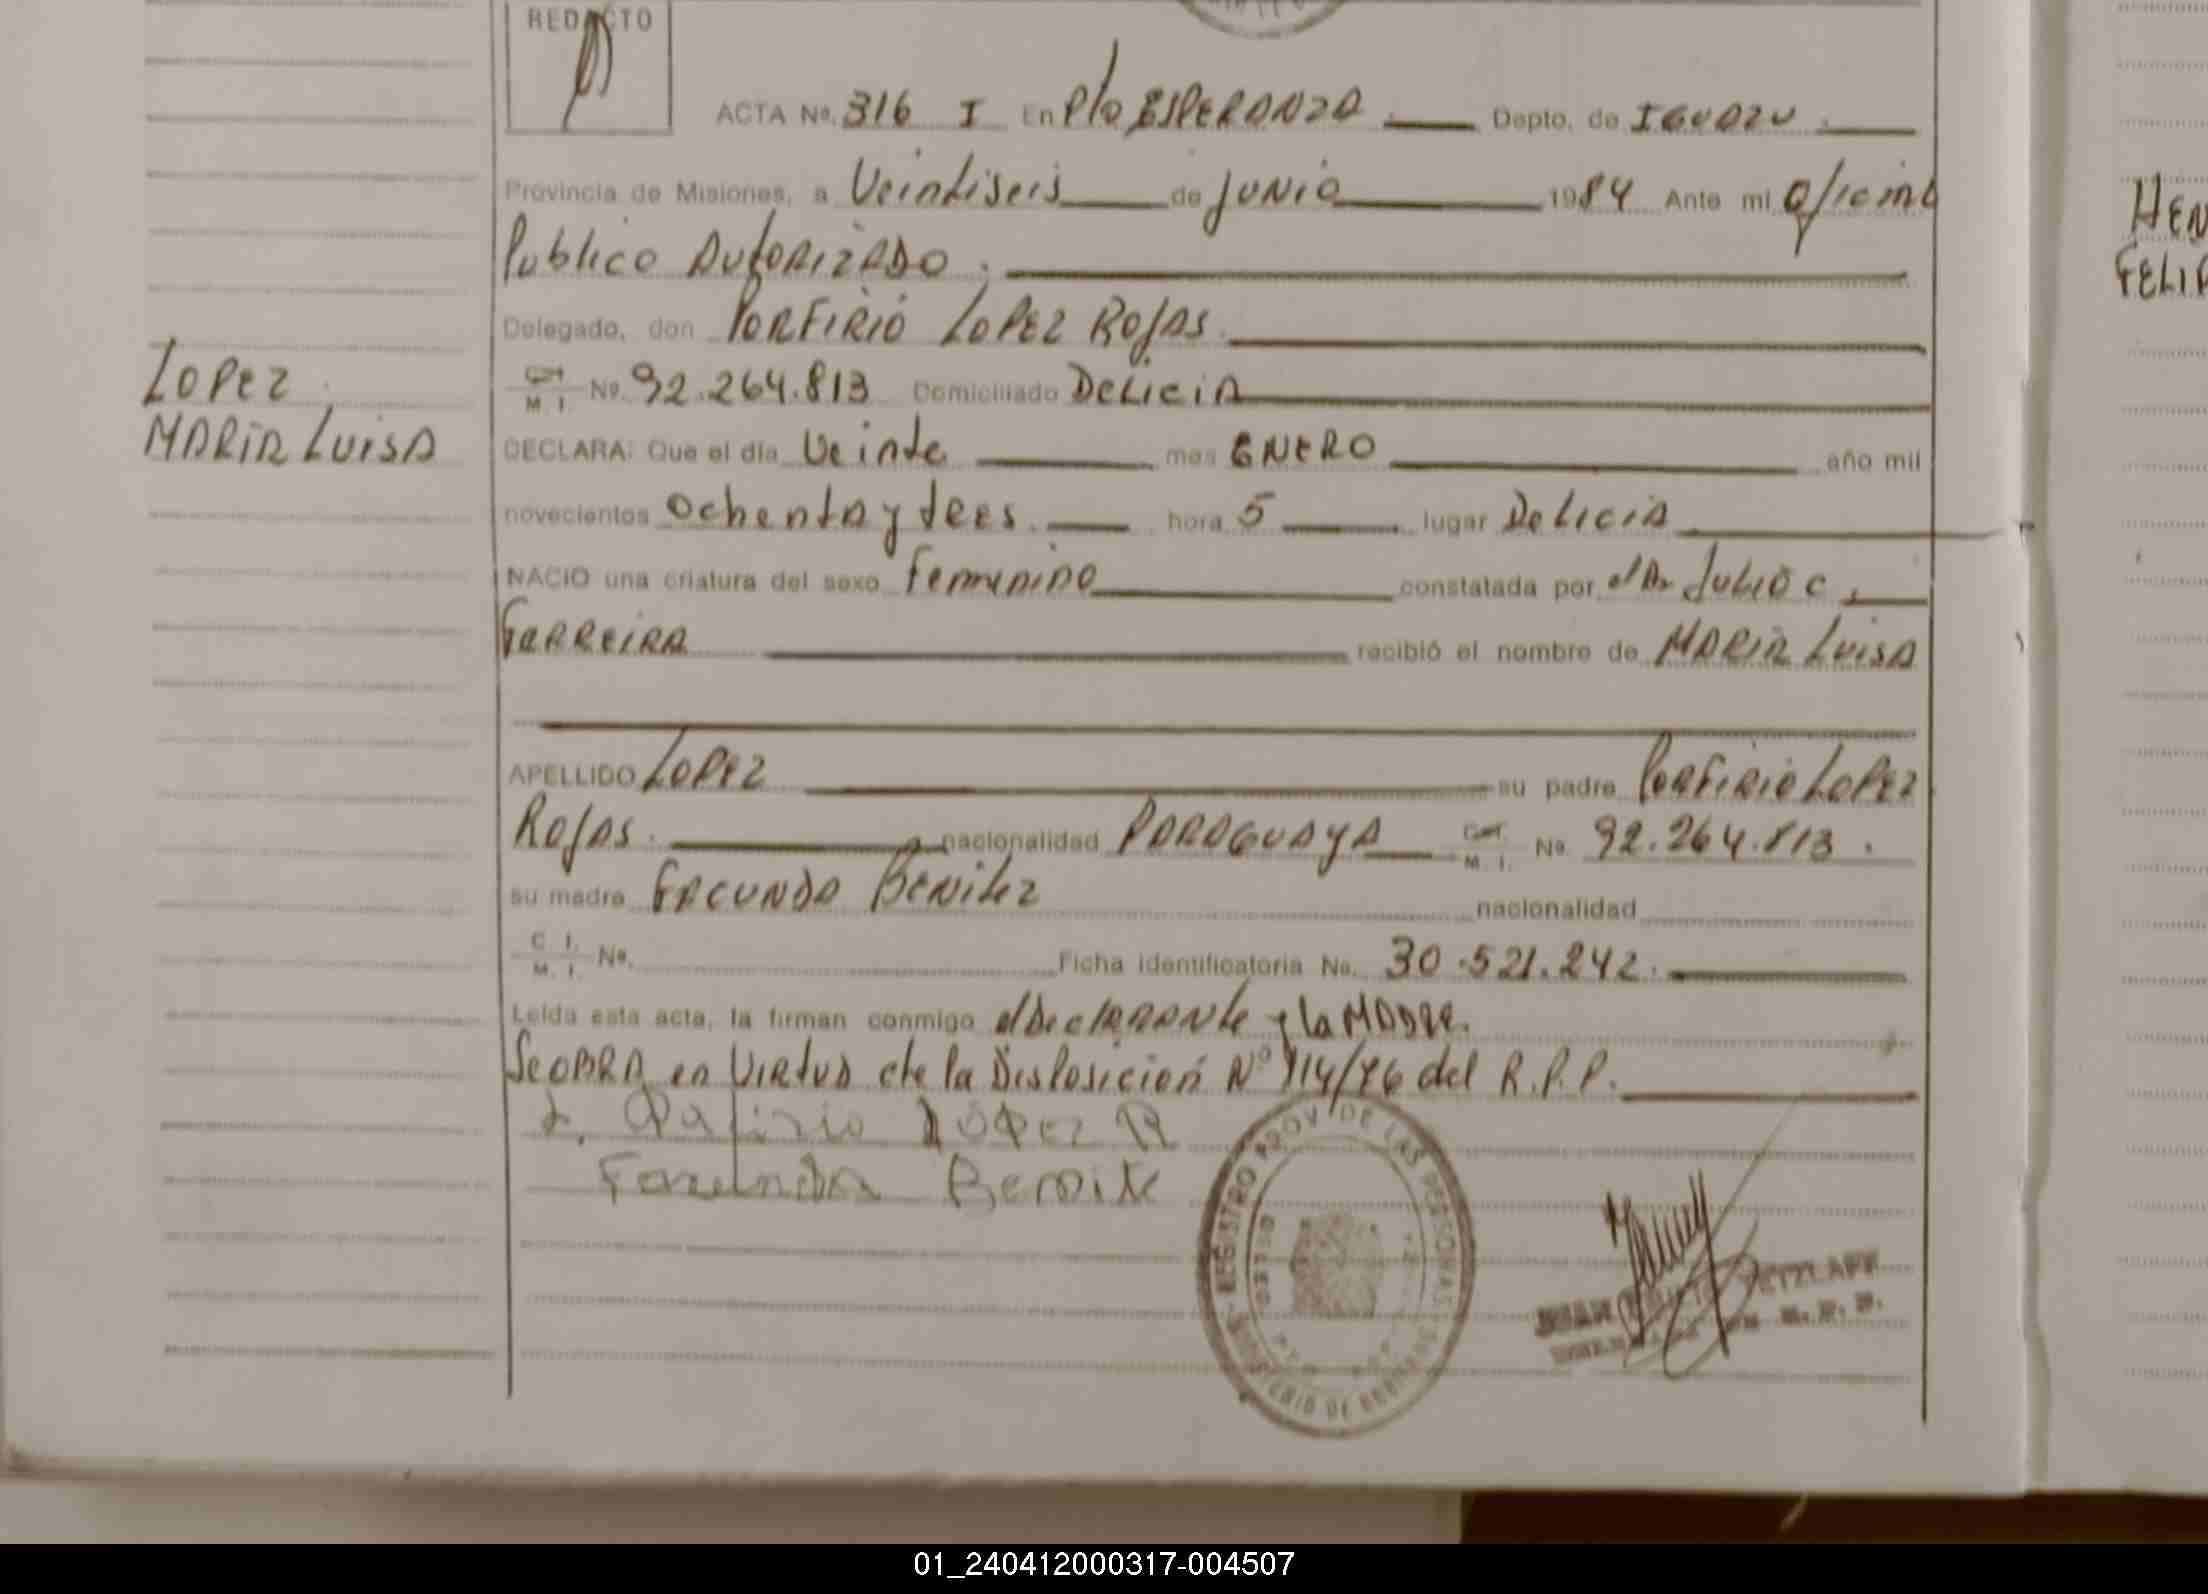 REDACTO
ACTA No. 316 I En Pto ESPERANZA Depto. de IGUAZU
Provincia de Misiones, a Veintiseis de junio 1984 Ante mi Oficial
Publico AutORIZADO.
Delegado, don PORFIRIO LOPEZ ROJAS.
C.I. M. I. No. 92.264.813 Domiciliado DELICIA
LOPEZ
MARIA LUISA
DECLARA: Que el día Veinte mes ENERO año mil
novecientos ochenta y tres. hora 5 lugar DeLICIA
NACIO una criatura del sexo Femenino constatada por el Dr JULIO C.
FERREIRA recibió el nombre de MARIA LUISA
APELLIDO LOPEZ su padre PORFIRIO LOPEZ
ROJAS. nacionalidad PARAGUAYA C.I. M. I. No. 92.264.813.
su madre FACUNDA BENITEZ nacionalidad
C. I. M. I. No. Ficha identificatoria No. 30.521.242.
Leída esta acta, la firman conmigo el DeclARANte y la MADRE.
Se OBRA en VIRTUD de la Disposicion Nº 114/76 del R.P.P.
LOPEZ R
REGISTRO PROV. DE LAS PERSONAS
MINISTERIO DE GOBIERNO
JUAN
R. P. P.
HEN
FELIP
01_240412000317-004507